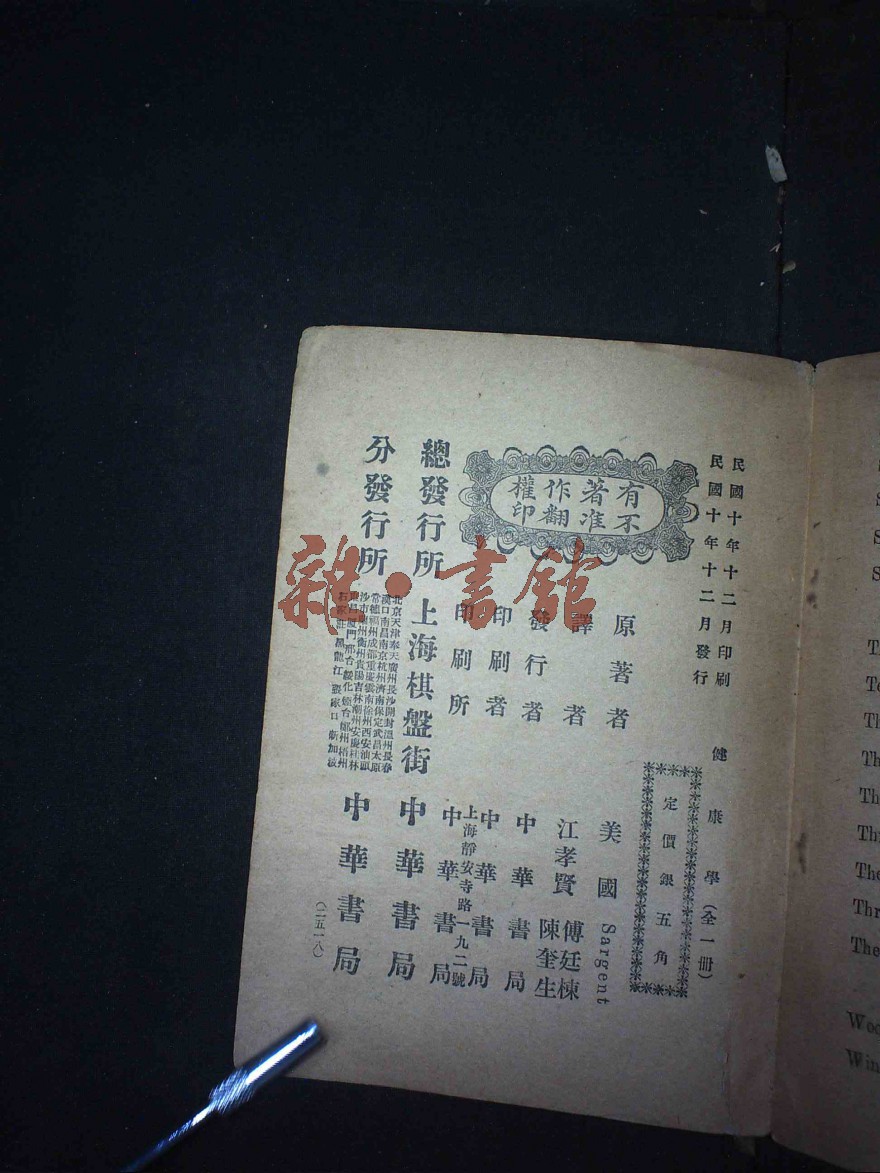 民國十年十二月印刷
民國十年十二月發行
健康學(全一冊)
定價銀五角
有著作權
不准翻印
原著者 美國 Sargent
譯者 江孝賢 傅廷棟 陳奎生
發行者 中華書局
印刷者 中華書局
印刷所 上海靜安寺路一九二號 中華書局
總發行所 上海棋盤街 中華書局
分發行所 中華書局
北京天津奉天廣州長沙開封溫州長春
漢口南昌南京杭州濟南保定武昌太原
常德福州成都重慶雲南徐州西安汕頭
沙市衢州貴陽吉林潮州安慶桂林
石家莊黑龍江張家口新加坡
(二五一八)
雜·書館
The
The
The
Thr
The
Woo
Win